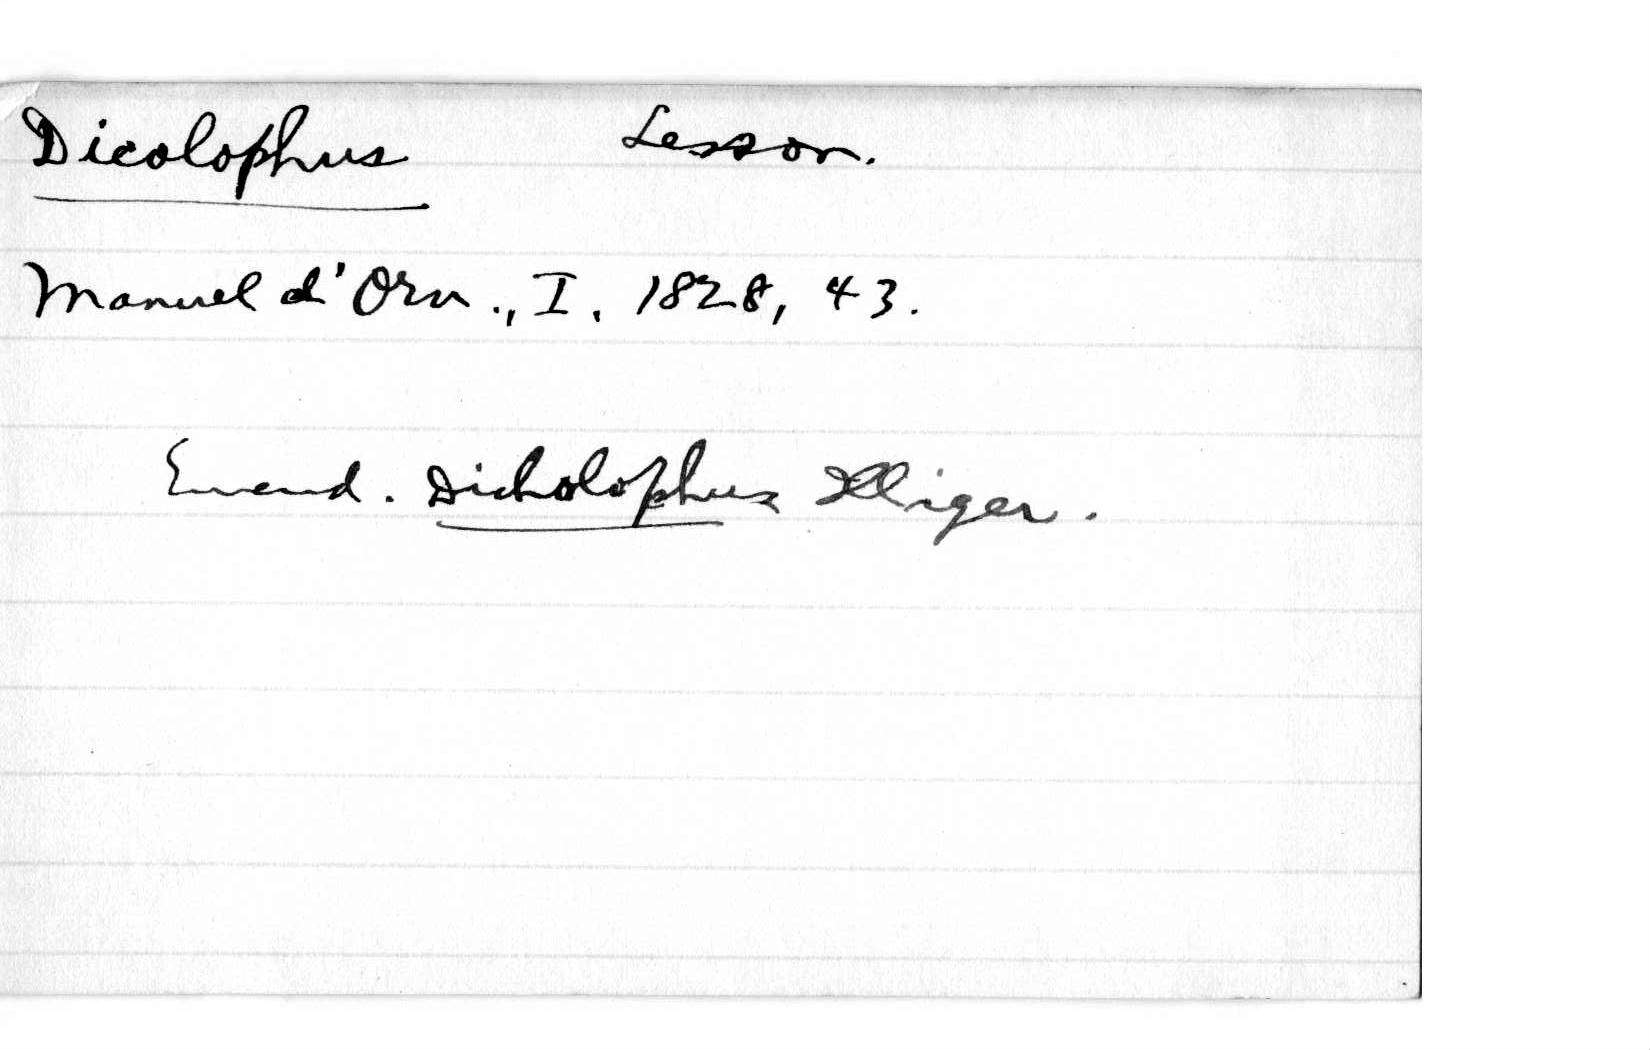 Dicolophus Lesson.
Manuel d'Orn., I, 1828, 43.
Emend. Dicholophus Illiger.